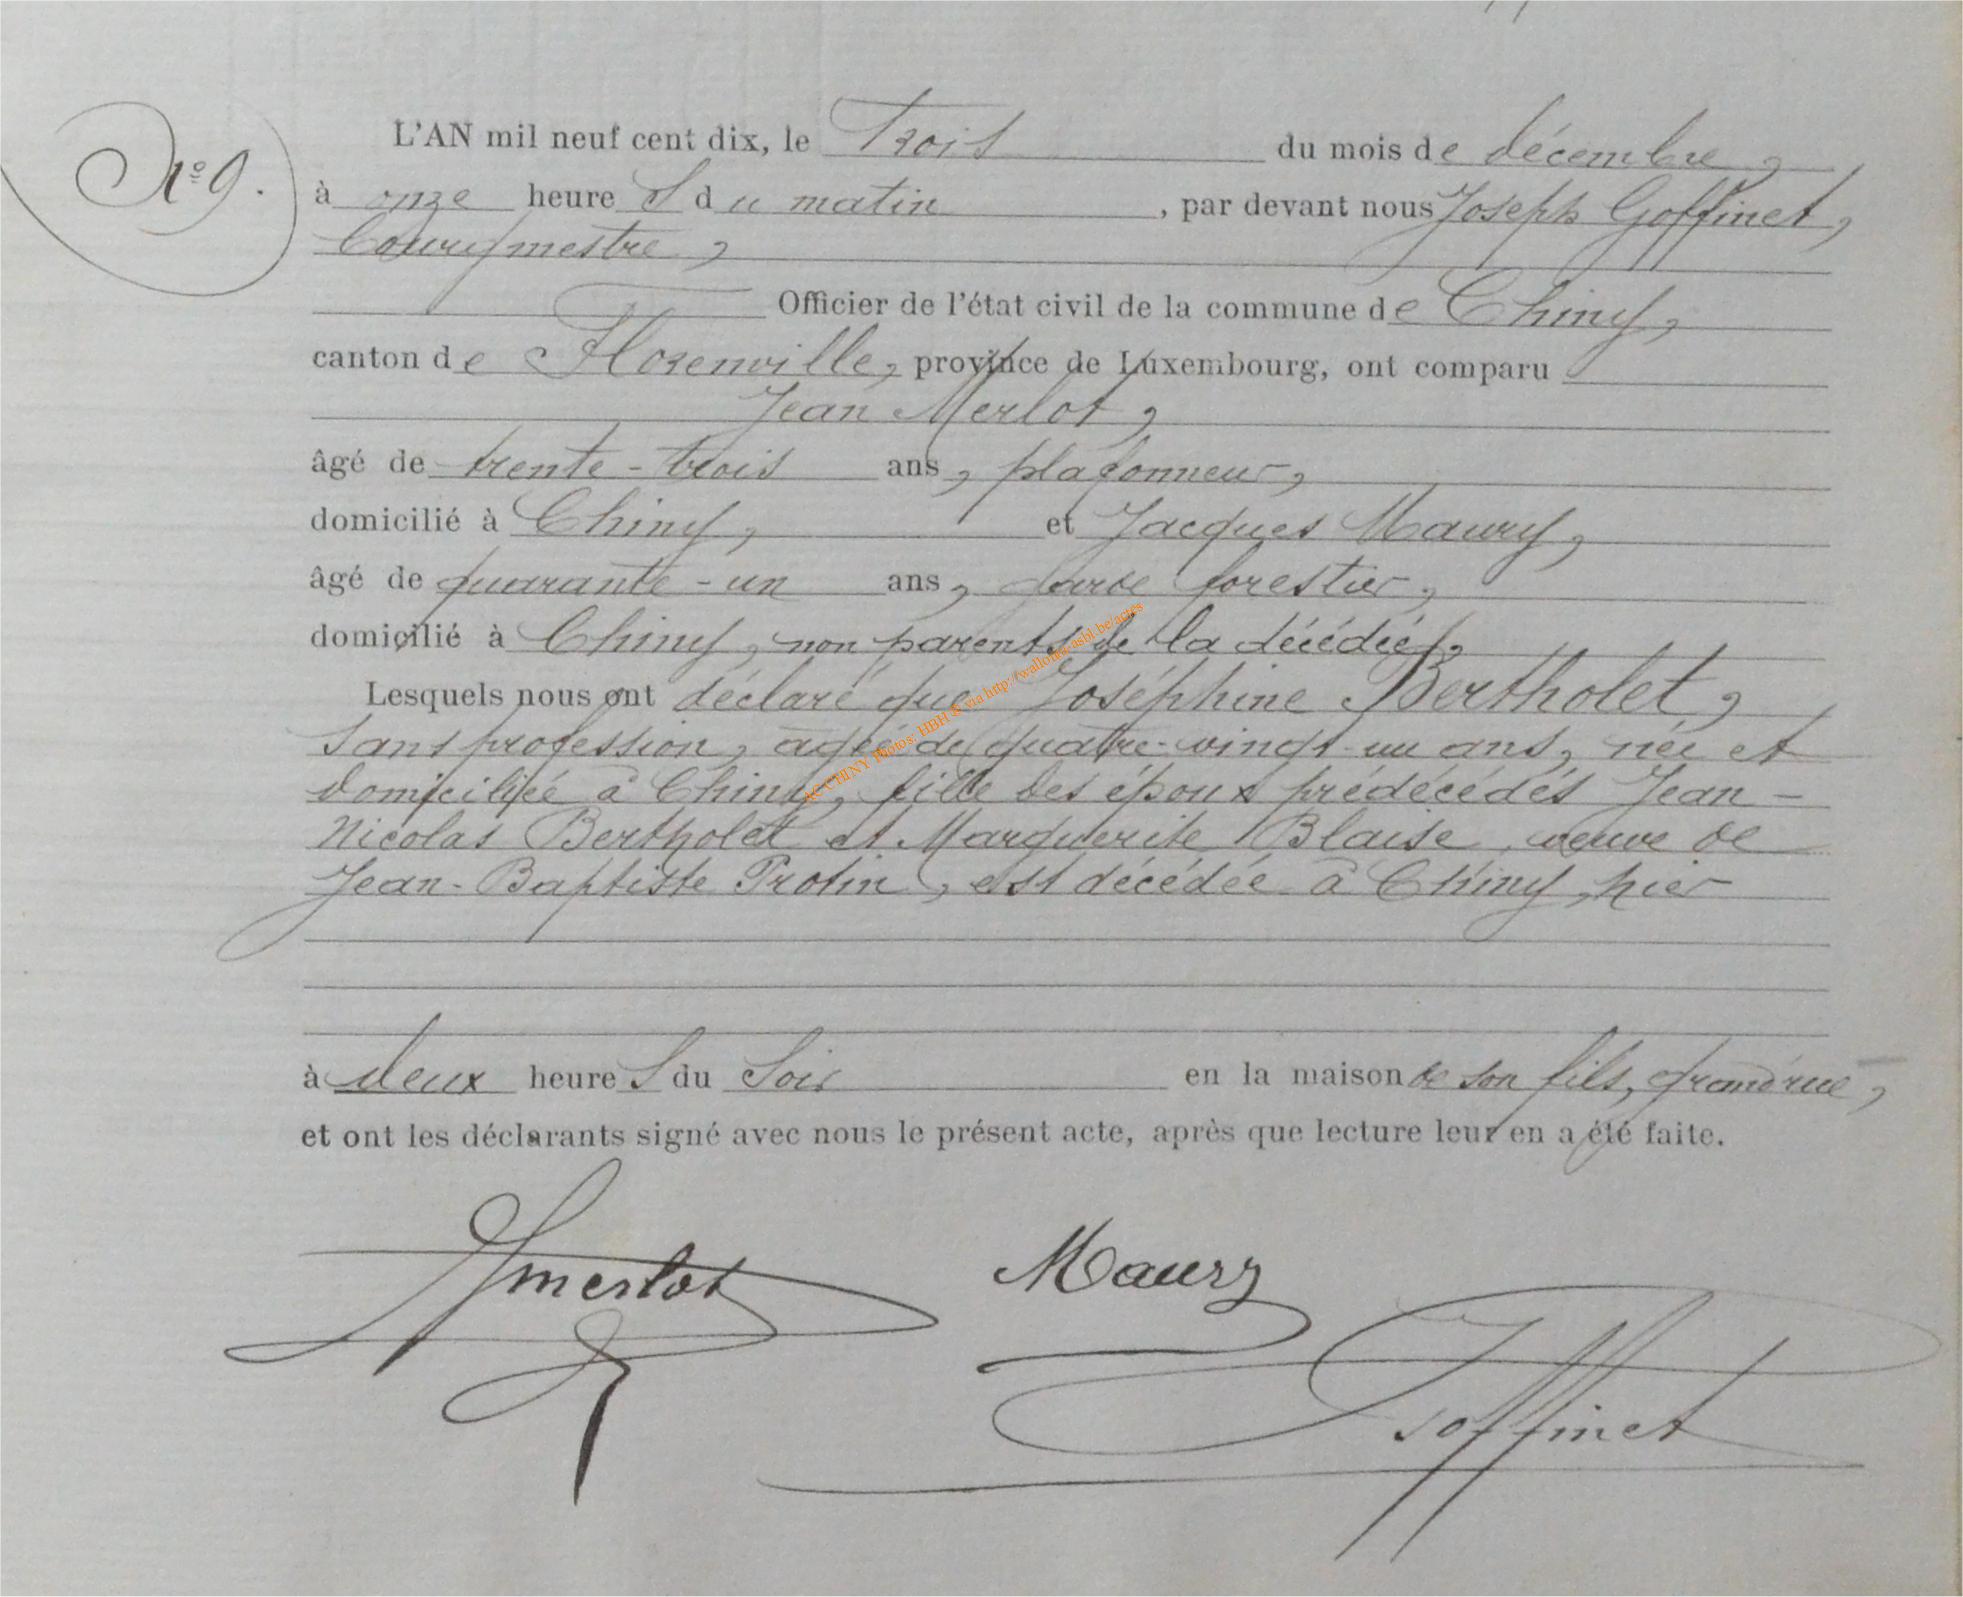 N° 9.
L'AN mil neuf cent dix, le Trois du mois de décembre,
à onze heures du matin, par devant nous Joseph Goffinet,
bourgmestre,
Officier de l'état civil de la commune de Chiny,
canton de Florenville, province de Luxembourg, ont comparu
Jean Merlot,
âgé de trente-trois ans, plafonneur,
domicilié à Chiny, et Jacques Maury,
âgé de quarante-un ans, garde forestier,
domicilié à Chiny, non parents de la décédée,
Lesquels nous ont déclaré que Joséphine Bertholet,
sans profession, âgée de quatre-vingt-un ans, née et
domiciliée à Chiny, fille des époux prédécédés Jean-
Nicolas Bertholet et Marguerite Blaise, veuve de
Jean-Baptiste Protin, est décédée à Chiny, hier
à deux heures du soir en la maison de son fils, grand'rue,
et ont les déclarants signé avec nous le présent acte, après que lecture leur en a été faite.
Jmerlot Maury
JGoffinet
AC CHINY Photos: HBH & via http://wallonia-asbl.be/actes